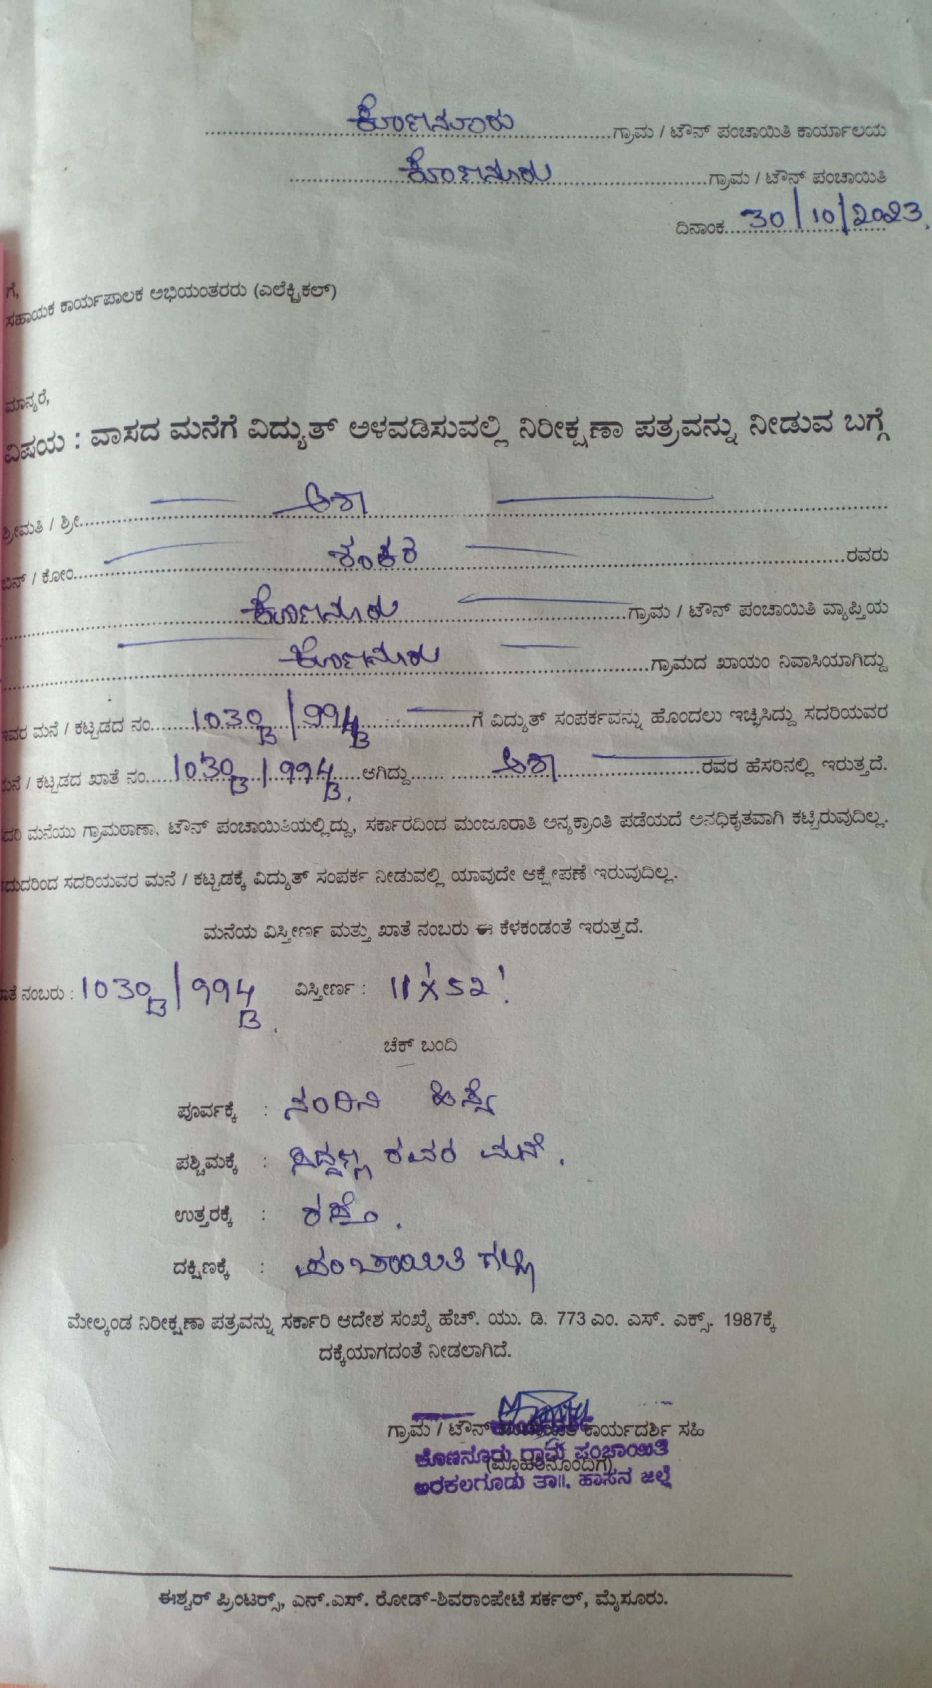 ಕೋಣನೂರು ಗ್ರಾಮ / ಟೌನ್ ಪಂಚಾಯಿತಿ ಕಾರ್ಯಾಲಯ
ಕೋಣನೂರು ಗ್ರಾಮ / ಟೌನ್ ಪಂಚಾಯಿತಿ
ದಿನಾಂಕ 30/10/2023.
ಗೆ,
ಸಹಾಯಕ ಕಾರ್ಯಪಾಲಕ ಅಭಿಯಂತರರು (ಎಲೆಕ್ಟ್ರಿಕಲ್)
ಮಾನ್ಯರೆ,
ವಿಷಯ : ವಾಸದ ಮನೆಗೆ ವಿದ್ಯುತ್ ಅಳವಡಿಸುವಲ್ಲಿ ನಿರೀಕ್ಷಣಾ ಪತ್ರವನ್ನು ನೀಡುವ ಬಗ್ಗೆ
ಶ್ರೀಮತಿ / ಶ್ರೀ ಆಶಾ
ಬಿನ್ / ಕೋಂ ಶಂಕರ ರವರು
ಕೋಣನೂರು ಗ್ರಾಮ / ಟೌನ್ ಪಂಚಾಯಿತಿ ವ್ಯಾಪ್ತಿಯ
ಕೋಣನೂರು ಗ್ರಾಮದ ಖಾಯಂ ನಿವಾಸಿಯಾಗಿದ್ದು
ಇವರ ಮನೆ / ಕಟ್ಟಡದ ನಂ 1030B/994B ಗೆ ವಿದ್ಯುತ್ ಸಂಪರ್ಕವನ್ನು ಹೊಂದಲು ಇಚ್ಛಿಸಿದ್ದು ಸದರಿಯವರ
ಮನೆ / ಕಟ್ಟಡದ ಖಾತೆ ನಂ 1030B/994B. ಆಗಿದ್ದು ಆಶಾ ರವರ ಹೆಸರಿನಲ್ಲಿ ಇರುತ್ತದೆ.
ಮನೆಯು ಗ್ರಾಮಠಾಣಾ, ಟೌನ್ ಪಂಚಾಯಿತಿಯಲ್ಲಿದ್ದು, ಸರ್ಕಾರದಿಂದ ಮಂಜೂರಾತಿ ಅನ್ಯಕ್ರಾಂತಿ ಪಡೆಯದೆ ಅನಧಿಕೃತವಾಗಿ ಕಟ್ಟಿರುವುದಿಲ್ಲ.
ಸದರಿಯವರ ಮನೆ / ಕಟ್ಟಡಕ್ಕೆ ವಿದ್ಯುತ್ ಸಂಪರ್ಕ ನೀಡುವಲ್ಲಿ ಯಾವುದೇ ಆಕ್ಷೇಪಣೆ ಇರುವುದಿಲ್ಲ.
ಮನೆಯ ವಿಸ್ತೀರ್ಣ ಮತ್ತು ಖಾತೆ ನಂಬರು ಈ ಕೆಳಕಂಡಂತೆ ಇರುತ್ತದೆ.
ಖಾತೆ ನಂಬರು : 1030B/994B. ವಿಸ್ತೀರ್ಣ : 11'X52'.
ಚೆಕ್ ಬಂದಿ
ಪೂರ್ವಕ್ಕೆ : ನಂದಿನಿ ಹಿಸ್ಸೆ
ಪಶ್ಚಿಮಕ್ಕೆ : ಸಿದ್ದಣ್ಣ ರವರ ಮನೆ.
ಉತ್ತರಕ್ಕೆ : ರಸ್ತೆ.
ದಕ್ಷಿಣಕ್ಕೆ : ಪಂಚಾಯಿತಿ ಗಲ್ಲಿ
ಮೇಲ್ಕಂಡ ನಿರೀಕ್ಷಣಾ ಪತ್ರವನ್ನು ಸರ್ಕಾರಿ ಆದೇಶ ಸಂಖ್ಯೆ ಹೆಚ್. ಯು. ಡಿ. 773 ಎಂ. ಎಸ್. ಎಕ್ಸ್. 1987ಕ್ಕೆ
ದಕ್ಕೆಯಾಗದಂತೆ ನೀಡಲಾಗಿದೆ.
ಗ್ರಾಮ / ಟೌನ್ ಕಾರ್ಯದರ್ಶಿ ಸಹಿ
ಕೊಣನೂರು ಗ್ರಾಮ ಪಂಚಾಯಿತಿ
(ಮೊಹರಿನೊಂದಿಗೆ)
ಅರಕಲಗೂಡು ತಾ॥, ಹಾಸನ ಜಿಲ್ಲೆ
ಈಶ್ವರ್ ಪ್ರಿಂಟರ್ಸ್, ಎನ್.ಎಸ್. ರೋಡ್-ಶಿವರಾಂಪೇಟೆ ಸರ್ಕಲ್, ಮೈಸೂರು.